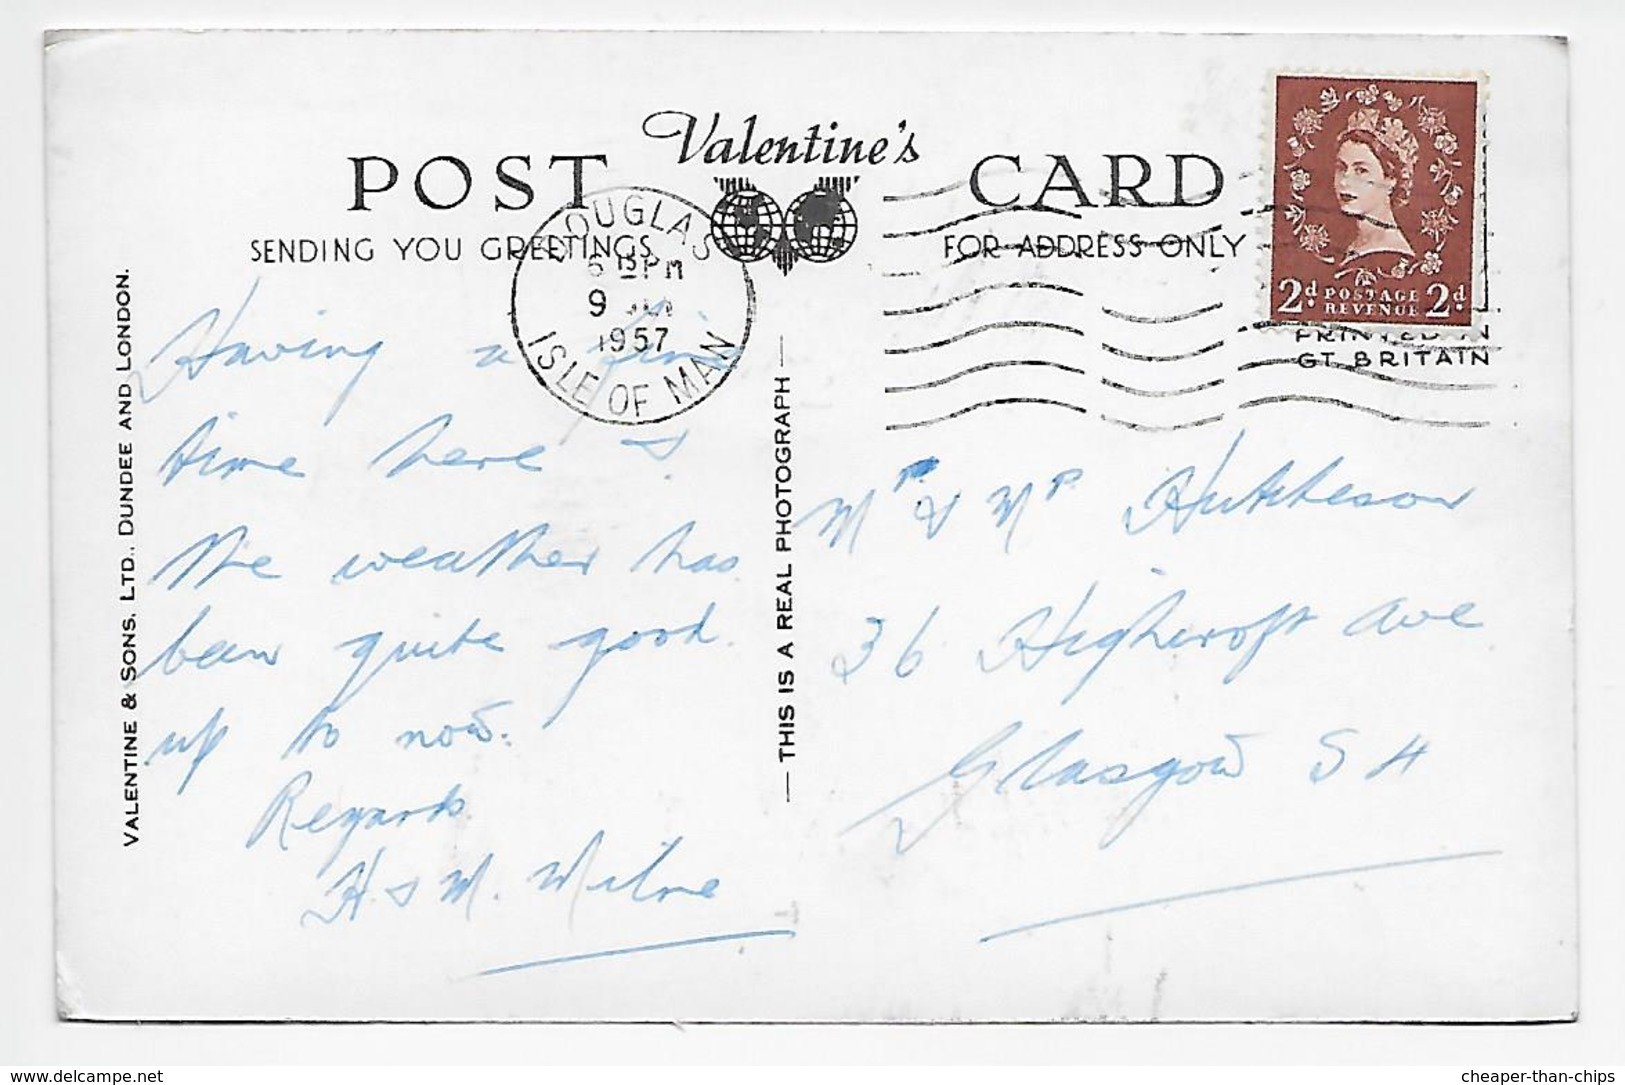 Valentine's
POST CARD
SENDING YOU GREETINGS
FOR ADDRESS ONLY
DOUGLAS
6 PM
9
1957
ISLE OF MAN
2d POSTAGE 2d
REVENUE
PRINTED IN
GT. BRITAIN
VALENTINE & SONS, LTD., DUNDEE AND LONDON.
THIS IS A REAL PHOTOGRAPH
Having a fine
time here &
the weather has
been quite good
up to now.
Regards
H. & M. Milne
Mr & Mrs Hutcheson
36 Highcroft Ave
Glasgow S4
delcampe.net
cheaper-than-chips